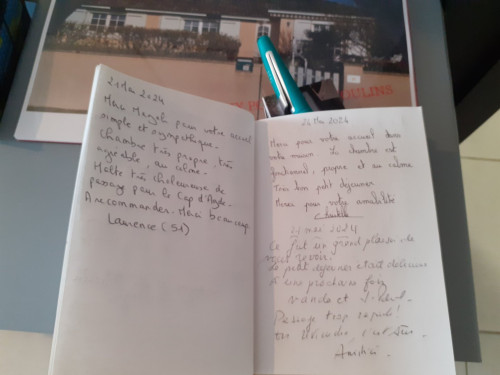 MOULINS
21 Mai 2024
Merci pour votre accueil
simple et sympathique.
Chambre très propre, très
agréable, au calme.
Halte très chaleureuse de
passage pour le Cap d'Agde.
A recommander. Merci beaucoup.
Laurence (51)
24 Mai 2024
Merci pour votre accueil dans
votre maison. La chambre est
fonctionnel, propre et au calme
Très bon petit dejeuner
Merci pour votre amabilité
mai 2024
Ce fut un grand plaisir de
vous revoir.
Le petit dejeuner etait délicieux
A une prochaine fois
Passage trop rapide!